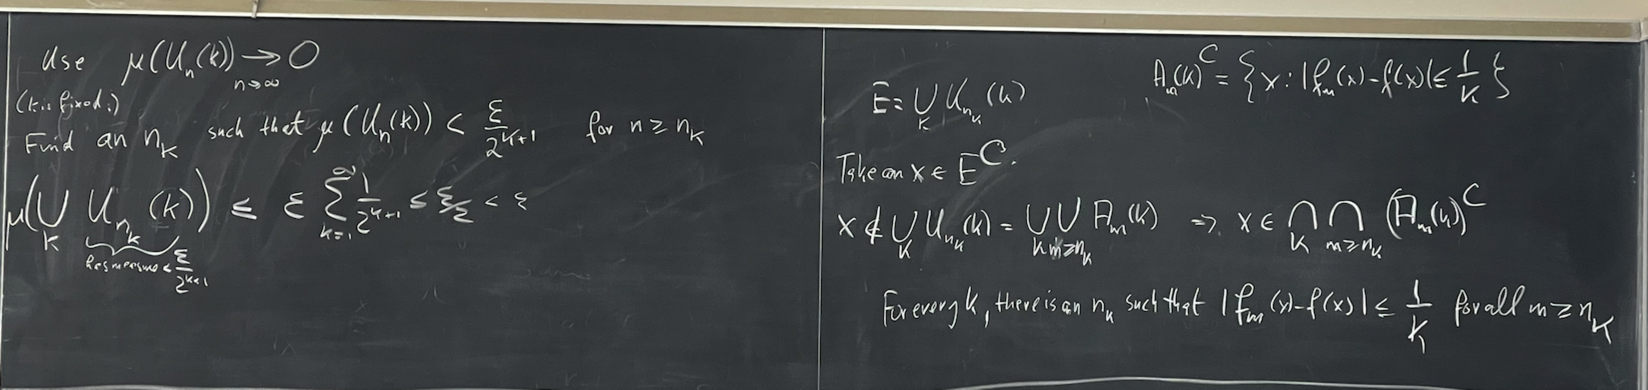 Use μ(Uₙ(k)) → 0
n→∞
(k is fixed.)
Find an n_k such that μ(Uₙ(k)) < ε/2^{k+1} for n ≥ n_k
μ(⋃_k U_{n_k}(k)) ≤ ε ∑_{k=1}^∞ 1/2^{k+1} ≤ ε/2 < ε
has measure < ε/2^{k+1}
A_m(k)^C = {x : |f_m(x) - f(x)| ≤ 1/k}
E = ⋃_k U_{n_k}(k)
Take an x ∈ E^C.
x ∉ ⋃_k U_{n_k}(k) = ⋃_k ⋃_{m≥n_k} A_m(k) ⇒ x ∈ ⋂_k ⋂_{m≥n_k} (A_m(k))^C
For every k, there is an n_k such that |f_m(x) - f(x)| ≤ 1/k for all m ≥ n_k